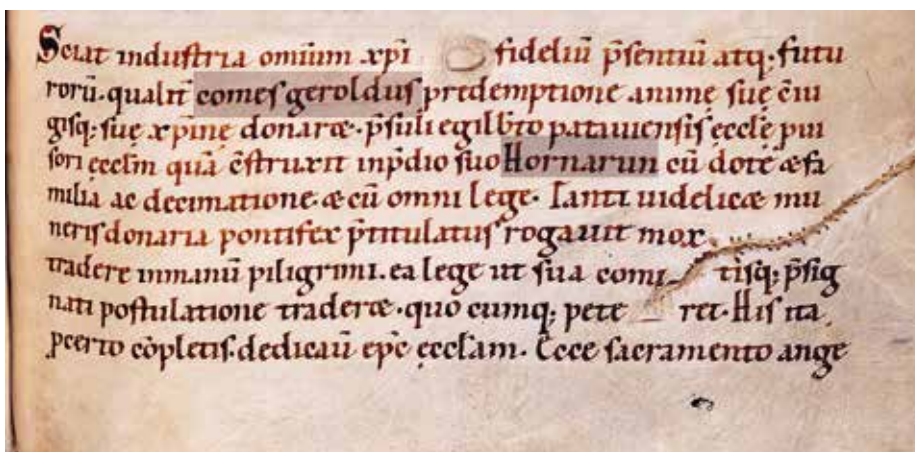 Sciat industria omiūm xp̄i fidelíū p̄sentíū atq; futu
rorū. qualit̄ comes geroldus predemptione animę suę c̄iu
gisq; suę xp̄inę donaret. p̄suli egilb̄to patauiensis ęcclę pui
sori ęcclm̄ quā c̄struxit inp̄dio suo Hornarun cū dote & fa
milia ac decimatione. & cū omni lege. Tanti uidelicet mu
neris donaria pontifex p̄titulatus rogauit mox
tradere inmanū piligrimi. ea lege ut sua comi tisq; p̄sig
nati postulatione traderet. quo cumq; pete ret. His ita
pcerto cōpletis. dedicaū ep̄c ęcclam. Ecce sacramento ange